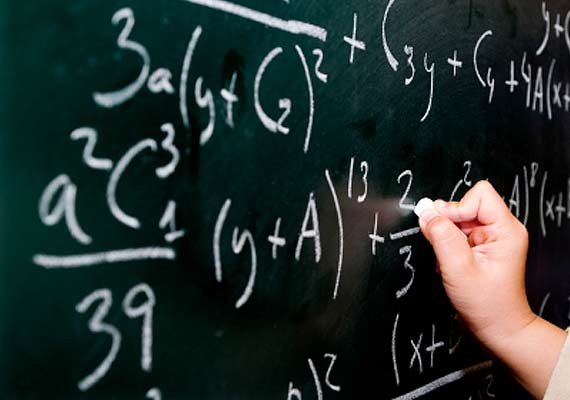 3a(y + C₂)² + C₃y + C₄ + 4A(x+ y+C
a²C₁³/39 (y+A)¹³ + 2/3 C² A)⁸(x+
)² (x+